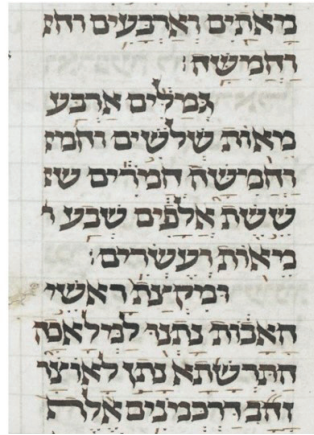 מאתים וארבעים וחמ
וחמישה׃
גמלים ארבע
מאות שלשים וחמ
וחמישה חמרים שש
ששת אלפים שבע
מאות ועשרים׃
ומקצת ראשי
האבות נתנו למלאכה
התרשתא נתן לאוצר
זהב דרכמנים אלף